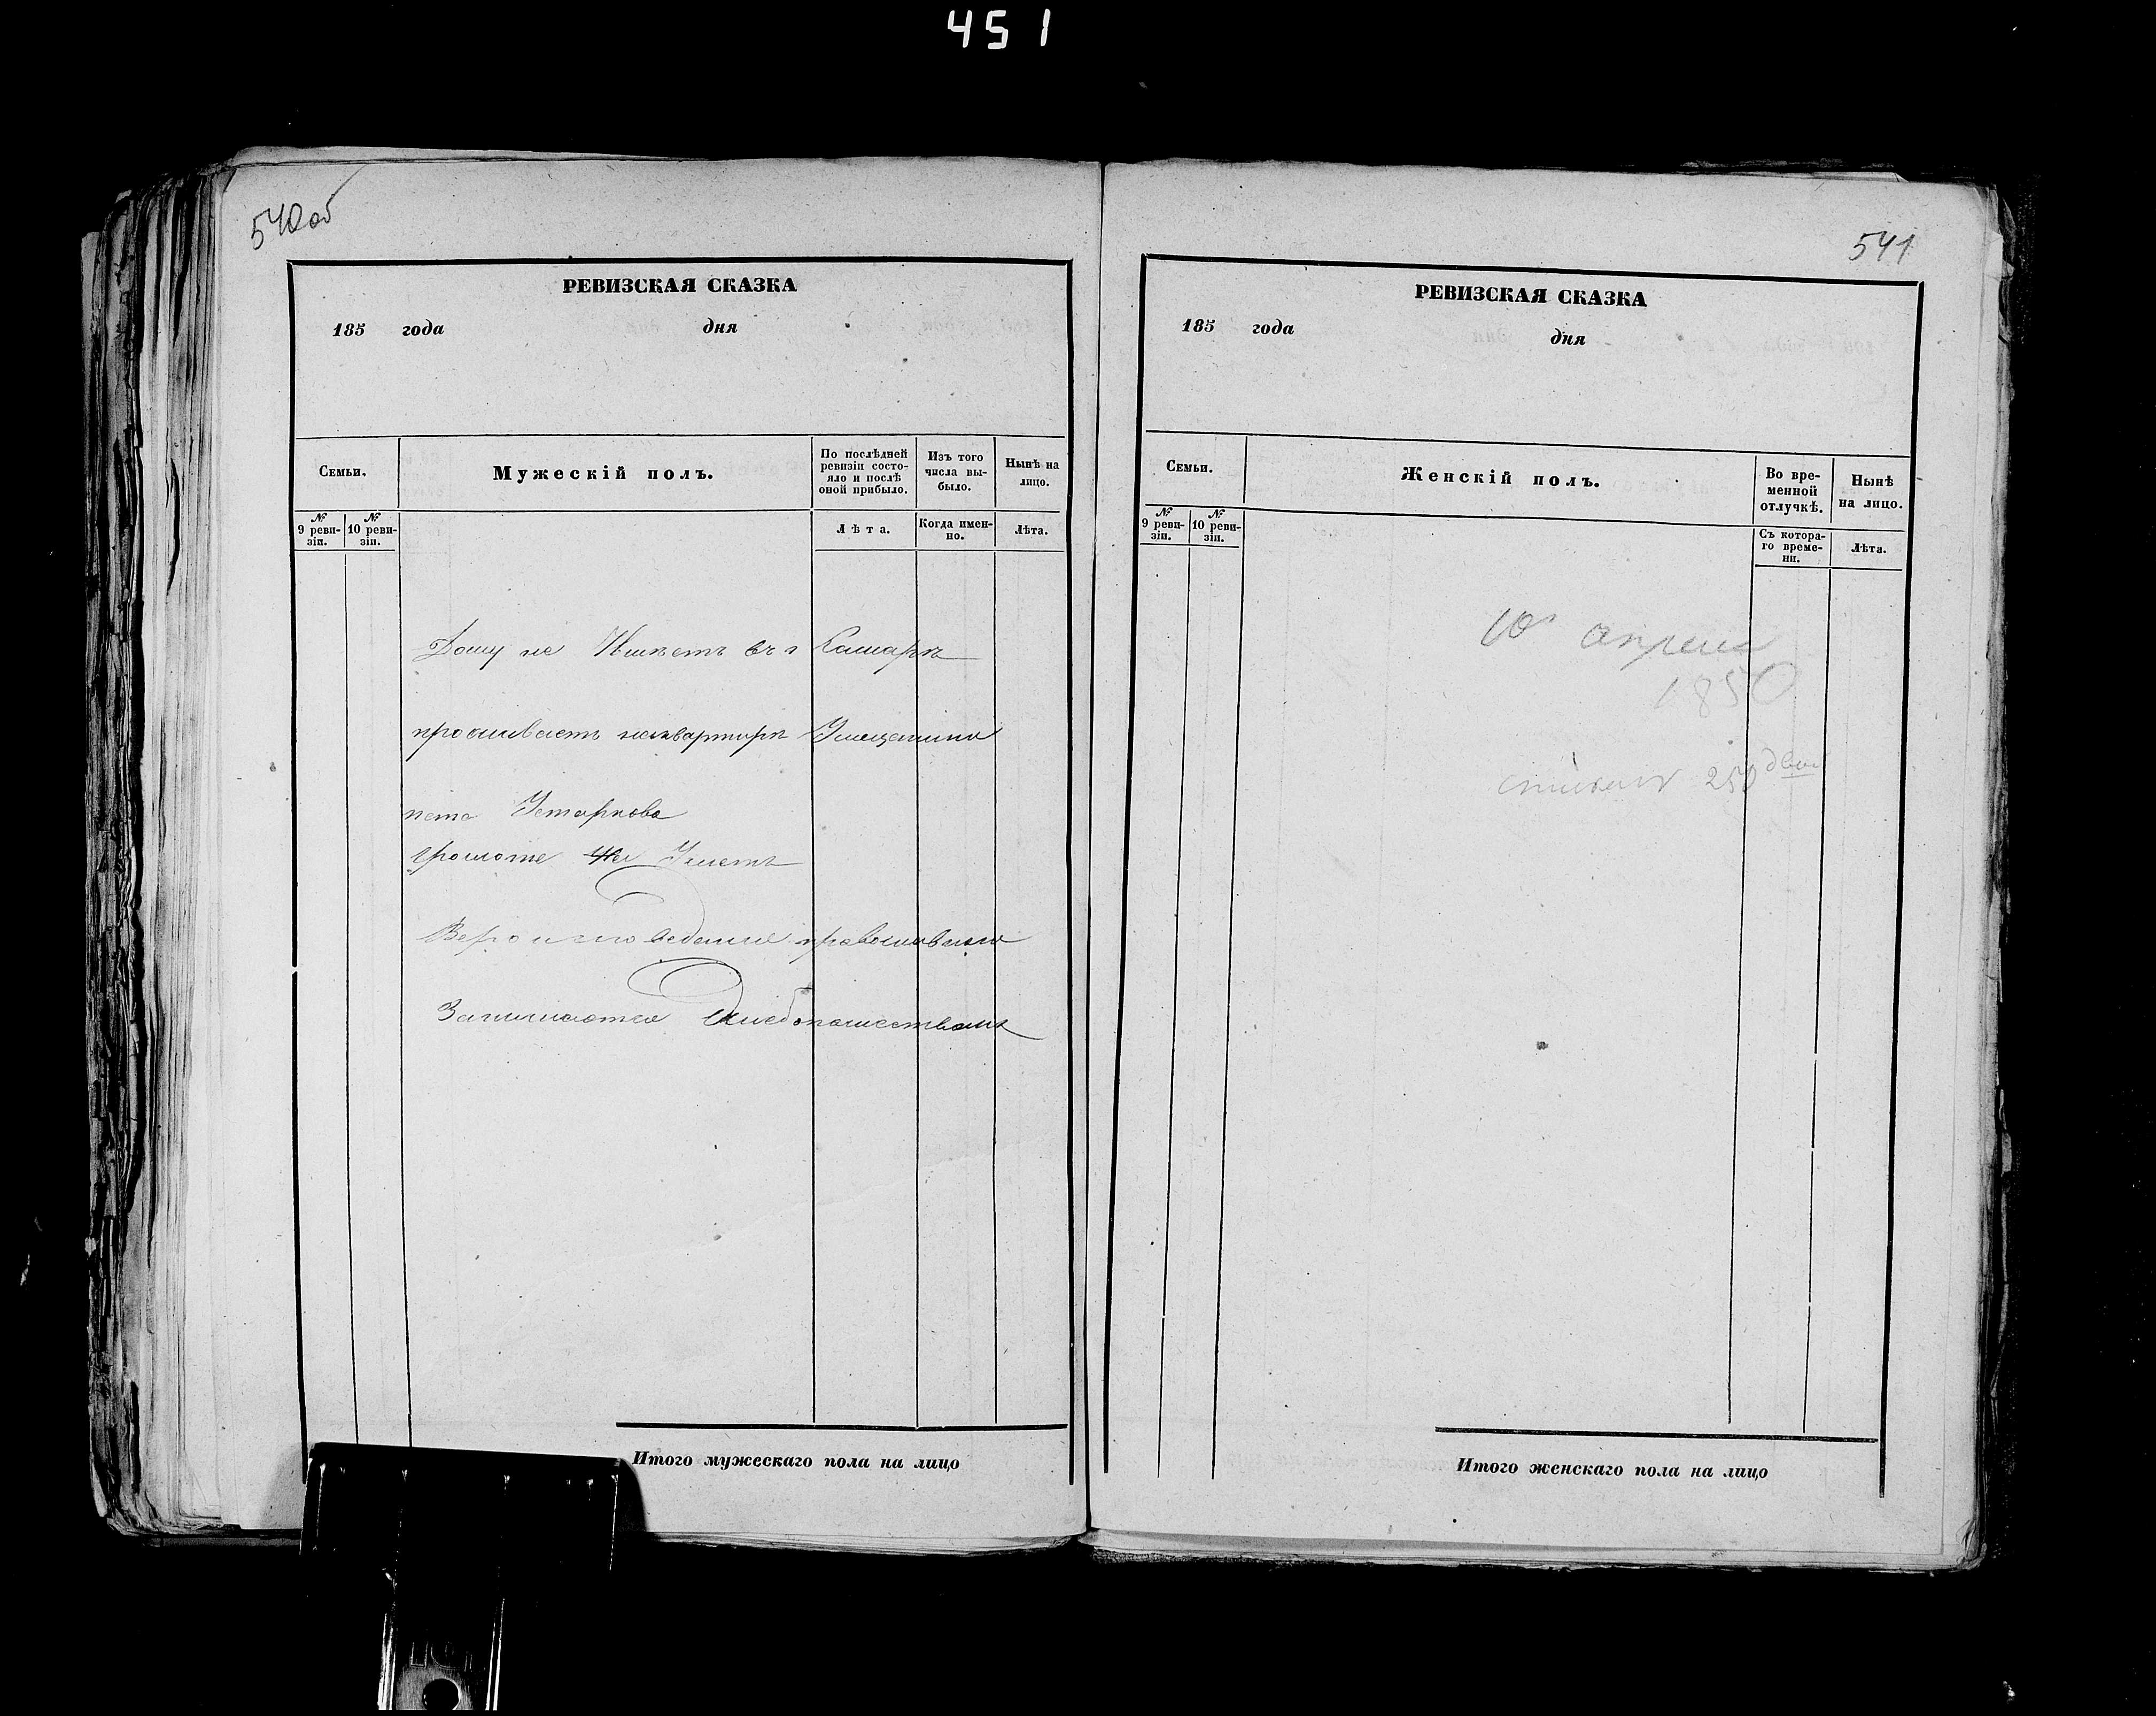 451
540об
РЕВИЗСКАЯ СКАЗКА
185 года дня
Семьи.
Мужескій полъ.
По послѣдней ревизіи состо-яло и послѣ оной прибыло.
Изъ того числа вы-было.
Нынѣ на лицо.
№ 9 реви-зіи.
№ 10 реви-зіи.
Лѣта.
Когда имен-но.
Лѣта.
Дому не Имѣетъ въ г Самарѣ
проживаетъ на квартирѣ Умещанина
Устаркова
грамоте не Умѣетъ
Вероисповедание православнаго
Занимаются Хлебопашествомъ
Итого мужескаго пола на лицо
541
РЕВИЗСКАЯ СКАЗКА
185 года дня
Семьи.
Женскій полъ.
Во вре-менной отлучкѣ.
Нынѣ на лицо.
№ 9 реви-зіи.
№ 10 реви-зіи.
Съ котора-го време-ни.
Лѣта.
10 апреля
1850
250
Итого женскаго пола на лицо